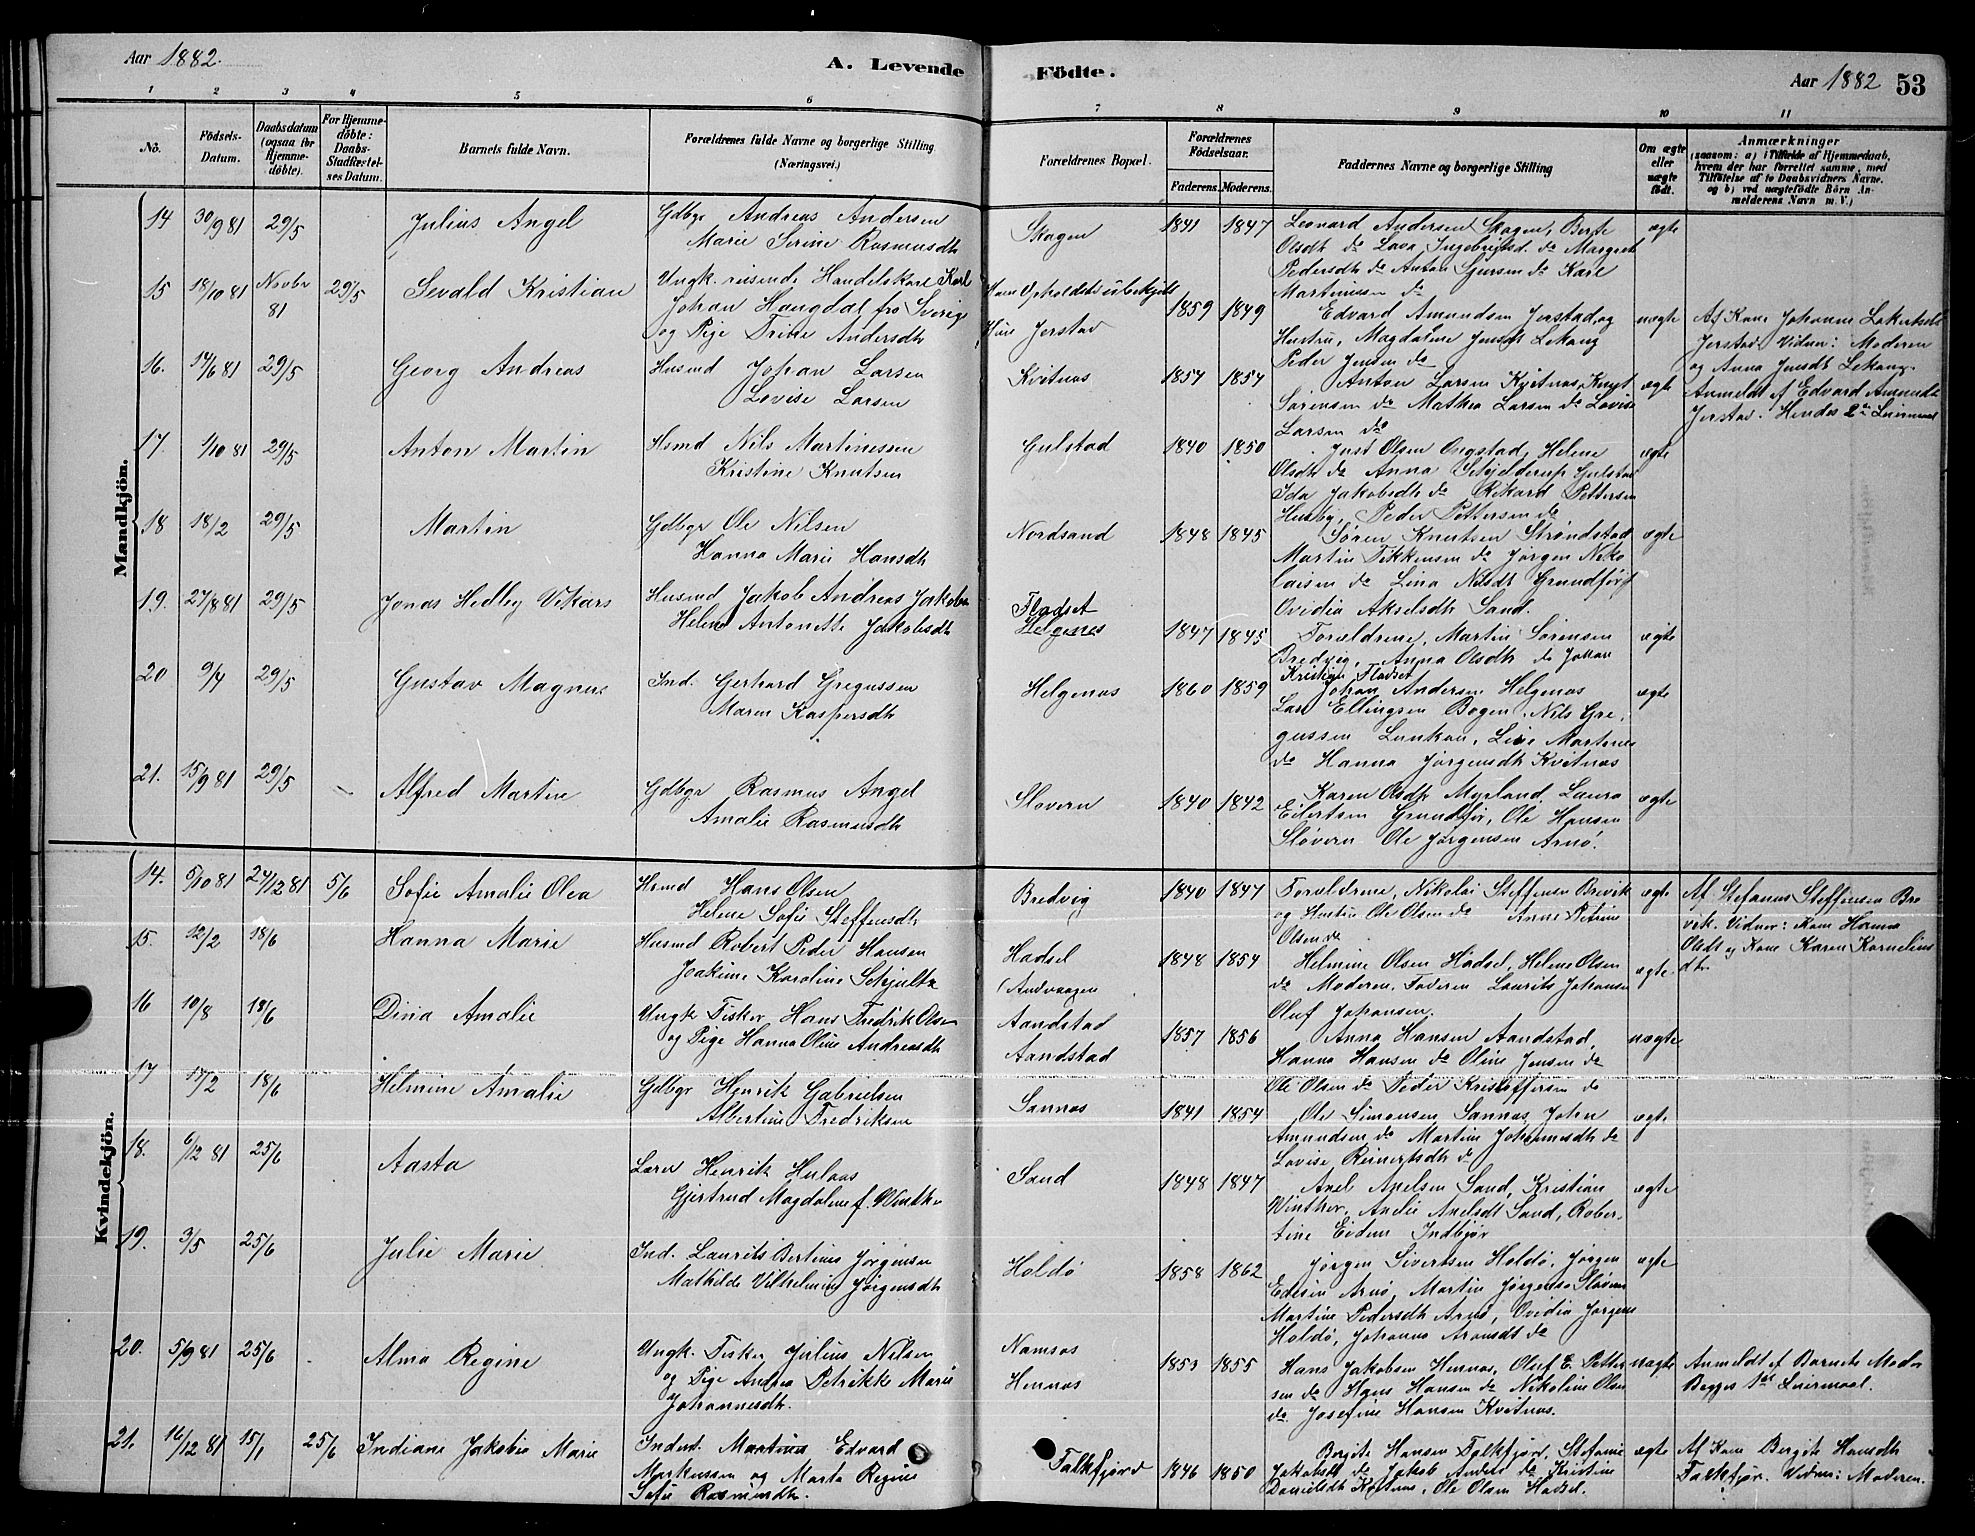 Aar 1882. A. Levende Födte. Aar 1882 53
1 2 3 4 5 6 7 8 9 10 11
Nō. Födsels-Datum. Daabsdatum (ogsaa for Hjemme-døbte). For Hjemme-døbte: Daabs-Stadfæstel-ses Datum. Barnets fulde Navn. Forældrenes fulde Navne og borgerlige Stilling (Næringsvei.) Forældrenes Bopæl. Forældrenes Födselsaar. Faderens. Moderens. Faddernes Navne og borgerlige Stilling Om ægte eller uægte födt. Anmærkninger (saasom: a) i Tilfælde af Hjemmedaab, hvem der har forrettet samme, med Tilföielse af to Daabsvidners Navne, og b) ved uægtefödte Börn An-melderens Navn m. V.)
Mandkjön.
14 30/9 81 29/5 Julius Angel Gdbgr Andreas Andersen Skagen 1841 1847 Leonard Andersen Skagen, Berte ægte
Marie Serine Rasmusdtr Olsdt do Lava Ingebrigtsd. do Margrete
Pedersdtr do Anton Sjursen do Karl
Martinusen do
15 18/10 81 Novbr 81 29/5 Sevald Kristian Ungk. reisende Handelskarl Karl Hans Opholdsted ubekjendt 1859 1849 Edvard Amundsen Jerstad, og uægte Af Kone Johanna
Johan Haugdal fra Sverige Hun Jerstad Hustru, Magdalene Jensdt Lekang Jerstad. Vidner: Moderen
og Pige Trine Andersdtr Peder Jensen do og Anna Jensdt Lekang.
16. 14/6 81 29/5 Georg Andreas Husmd Johan Larsen Kvitnæs 1854 1854 Anton Larsen Kvitnæs, Knut ægte Anmeldt af Edvard Amunds.
Lovise Larsen Sørensen do Mathea Larsen do Lovise Jerstad. Hendes 2det Leiermaal
Larsen do
17. 1/10 81 29/5 Anton Martin Hsmd Nils Martinussen Gulstad 1840 1850 Just Olsen Ongstad, Helene ægte
Kristine Knutsen Olsdtr do Anna Schjelderup Gulstad
Ida Jakobsdtr do Rikard Pettersen
Husby, Peder Pettersen do
18 18/2 29/5 Martin Gdbgr Ole Nilsen Nordsand 1848 1845 Søren Knutsen Strøndstad ægte
Hanna Marie Hansdtr Martin do Jørgen Niko
laisen do Lina Nilsdt Grundførf
Ovidia Akselsdtr Sand.
19. 27/8 81 29/5 Jonas Hedley Vikars Husmd Jakob Andreas Jakobsen Fladset
Helene Antonette Jakobsdtr Helgenes 1847 1845 Forældrene, Martin Sørensen ægte
Bredvig, Anna Olsdtr do Johan
Kristian Fladset
20 9/4 29/5 Gustav Magnus Ind. Gerhard Gregussen Helgenæs 1860 1859 Johan Andersen Helgenæs ægte
Maren Kaspersdtr Lars Ellingsen Bogen, Nils Gre,
gussen Lunkan, Lise Martenes
do Hanna Jørgensdtr Kvitnæs
21. 15/9 81 29/5 Alfred Martin Gdbgr Rasmus Angel Sløvern 1840 1842 Karen Olsdtr Myrland, Laura ægte
Amalie Rasmusdtr Eilertsen Grundfør, Ole Hansen
Sløvern Ole Jørgensen Arnø.
Kvindekjön.
14. 5/10 81 24/12 81 5/6 Sofie Amalie Olea Hsmd Hans Olsen Bredvig 1840 1847 Forældrene, Nikolai Steffensen Brevik ægte Af Stefanus Steffensen Bre
Helene Sofie Steffensdtr og Hustru Ole Olsen do Anne Petrine vik. Vidner: Kone Hanna
Olsen do Olsdt og Kone Karen Kornelius
dtr
15. 12/2 18/6 Hanna Marie Husmd Robert Peder Hansen Hadsel 1848 1854 Helmine Olsen Hadsel, Helene Olsen ægte.
Joakime Karoline Schjultz (Andvaagen do Moderen, Faderen Laurits Johansen
Oluf Johansen.
16 10/8 18/6 Dina Amalie Ungk. Fisker Hans Fredrik Olsen Aandstad 1857 1856 Anna Hansen Aandstad, uægte
og Pige Hanna Oline Andreasdtr Aandstad Hanna Hansen do Oline Jensen do
Ole Olsen do Peder Kristoffersen do
17 17/2 18/6 Helmine Amalie Gdbgr Henrik Gabrielsen Sannæs 1841 1854 Ole Simonsen Sannæs, John ægte
Albertine Fredriksen Amundsen do Martine Johannesdtr do
Lovise Reinertsdtr do
18. 6/12 81 25/6 Aasta Lærer Henrik Hulaas Sand 1848 1847 Axel Axelsen Sand, Kristian ægte
Gjertrud Magdalene f. Winther Winther, Axelsdt Sand, Rober-
tine Eidem Indbjør
19. 3/5 25/6 Julie Marie Ind. Laurits Bertinus Jørgensen Holdø 1858 1862 Jørgen Sivertsen Holdø, Jørgen ægte
Mathilde Vilhelmine Jørgensdtr Arnø, Martin Jørgensen Sløvern
Martine Pedersdtr Arnø, Ovidia Jørgens
Holdø, Johanna do
20. 5/9 81 25/6 Alma Regine Ungk. Fisker Julius Nilsen Namsos 1853 1855 Hans Jakobsen Hennæs, Oluf E. Petter uægte Anmeldt af Barnets Moder
og Pige Andrea Petrikke Marie Hennæs sen do Hans Hansen do Nikoline Olsen Begges 1ste Leiermaal.
Johannesdtr. do Josefine Hansen Kvitnæs.
21. 16/12 81 15/1 25/6 Indiane Jakobie Marie Inderst. Martinus Edvard Falkfjord 1846 1850 Bergite Hansen Falkfjord, Stefanie ægte Af Kone Bergite Hansdtr
Markussen og Marta Regine Jakobsdt do Jakob do Kristine Falkfjor. Vidne: Moderen.
Sofie Rasmusdtr. Danielsdtr Kvitnæs, Ole Olsen Hadsel.